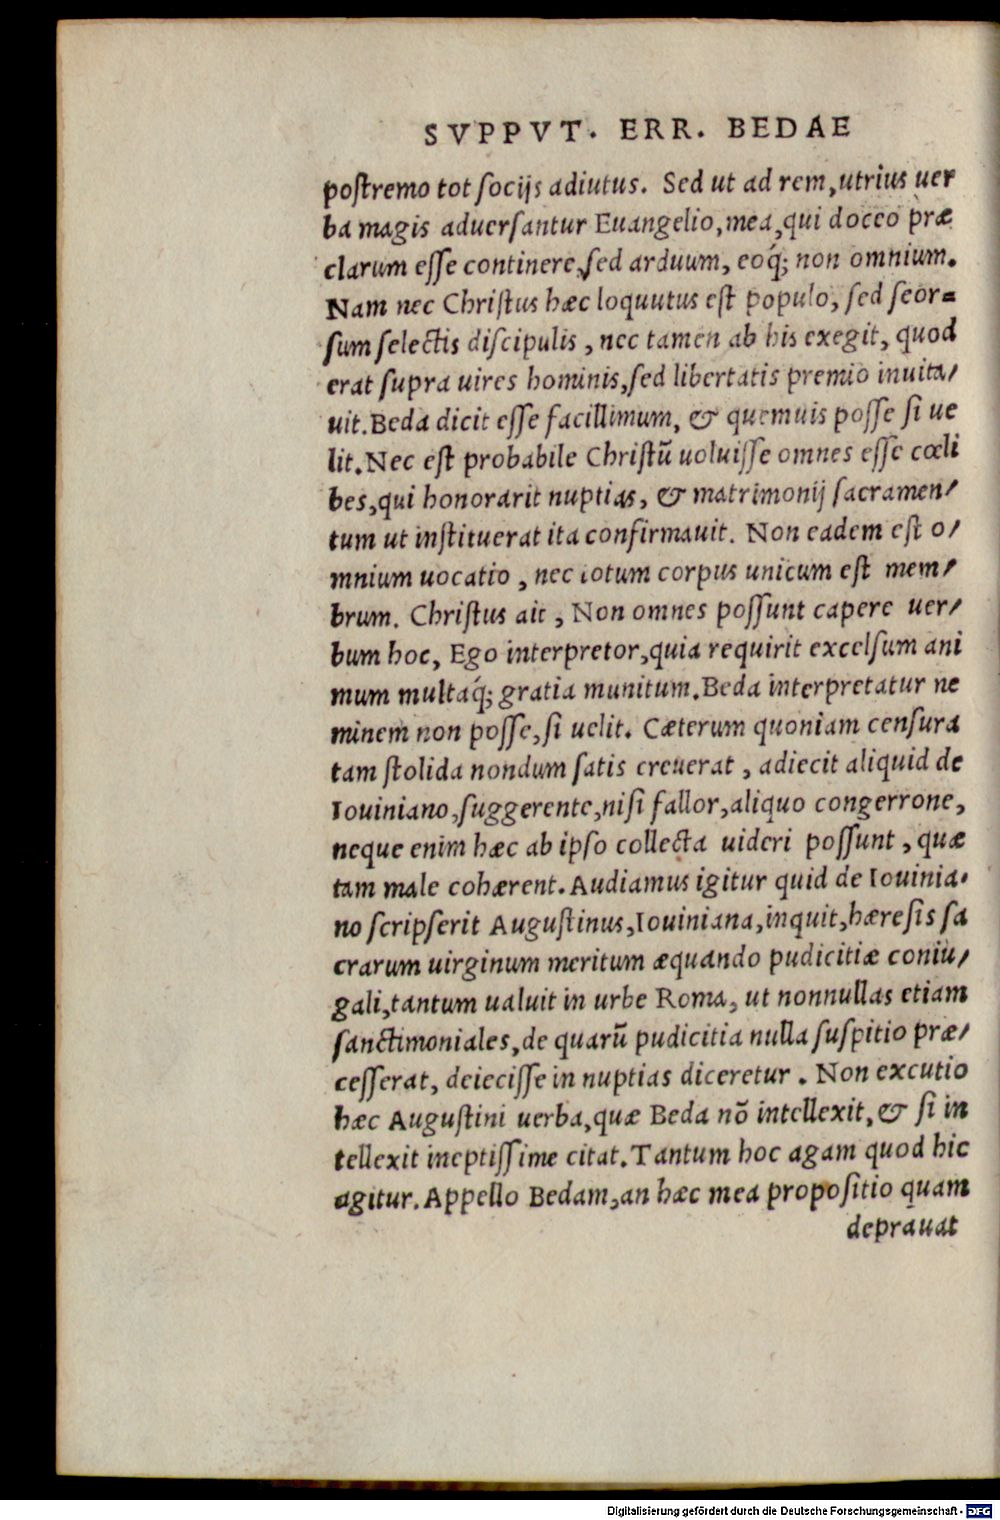 SVPPVT. ERR. BEDAE
postremo tot socijs adiutus. Sed ut ad rem, utrius uer
ba magis aduersantur Euangelio, mea, qui doceo præ
clarum esse continere, sed arduum, eoq́; non omnium.
Nam nec Christus hæc loquutus est populo, sed seor=
sum selectis discipulis, nec tamen ab his exegit, quod
erat supra uires hominis, sed libertatis premio inuita/
uit. Beda dicit esse facillimum, & quemuis posse si ue
lit. Nec est probabile Christũ uoluisse omnes esse cœli
bes, qui honorarit nuptias, & matrimonij sacramen/
tum ut instituerat ita confirmauit. Non eadem est o/
mnium uocatio, nec totum corpus unicum est mem/
brum. Christus ait, Non omnes possunt capere uer/
bum hoc, Ego interpretor, quia requirit excelsum ani
mum multaq́; gratia munitum. Beda interpretatur ne
minem non posse, si uelit. Cæterum quoniam censura
tam stolida nondum satis creuerat, adiecit aliquid de
Iouiniano, suggerente, nisi fallor, aliquo congerrone,
neque enim hæc ab ipso collecta uideri possunt, quæ
tam male cohærent. Audiamus igitur quid de Iouinia-
no scripserit Augustinus, Iouiniana, inquit, hæresis sa
crarum uirginum meritum æquando pudicitiæ coniu/
gali, tantum ualuit in urbe Roma, ut nonnullas etiam
sanctimoniales, de quarũ pudicitia nulla suspitio præ/
cesserat, deiecisse in nuptias diceretur. Non excutio
hæc Augustini uerba, quæ Beda nõ intellexit, & si in
tellexit ineptissime citat. Tantum hoc agam quod hic
agitur. Appello Bedam, an hæc mea propositio quam
deprauat
Digitalisierung gefördert durch die Deutsche Forschungsgemeinschaft - DFG